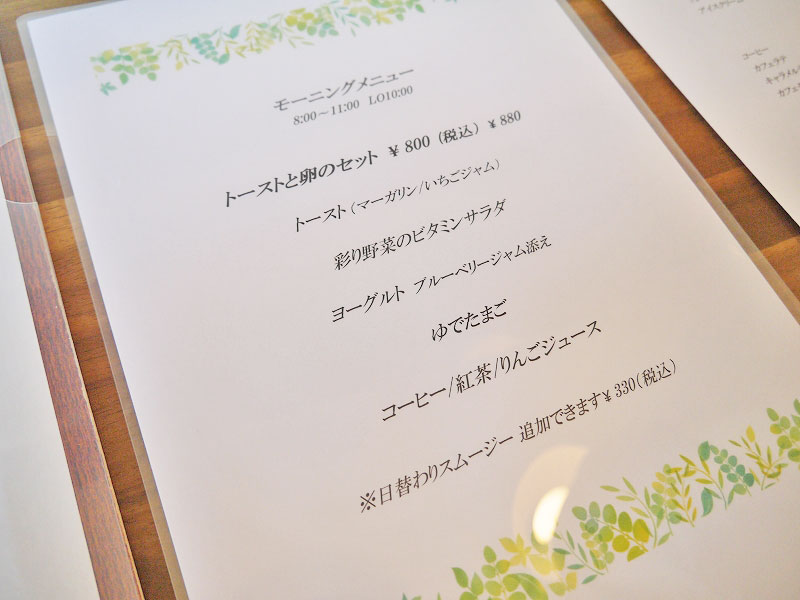 モーニングメニュー
8:00～11:00 LO10:00
トーストと卵のセット ￥800（税込）￥880
トースト（マーガリン/いちごジャム）
彩り野菜のビタミンサラダ
ヨーグルト ブルーベリージャム添え
ゆでたまご
コーヒー/紅茶/りんごジュース
※日替わりスムージー 追加できます￥330（税込）
アイスクリーム
コーヒー
カフェラテ
キャラメル
カフェ